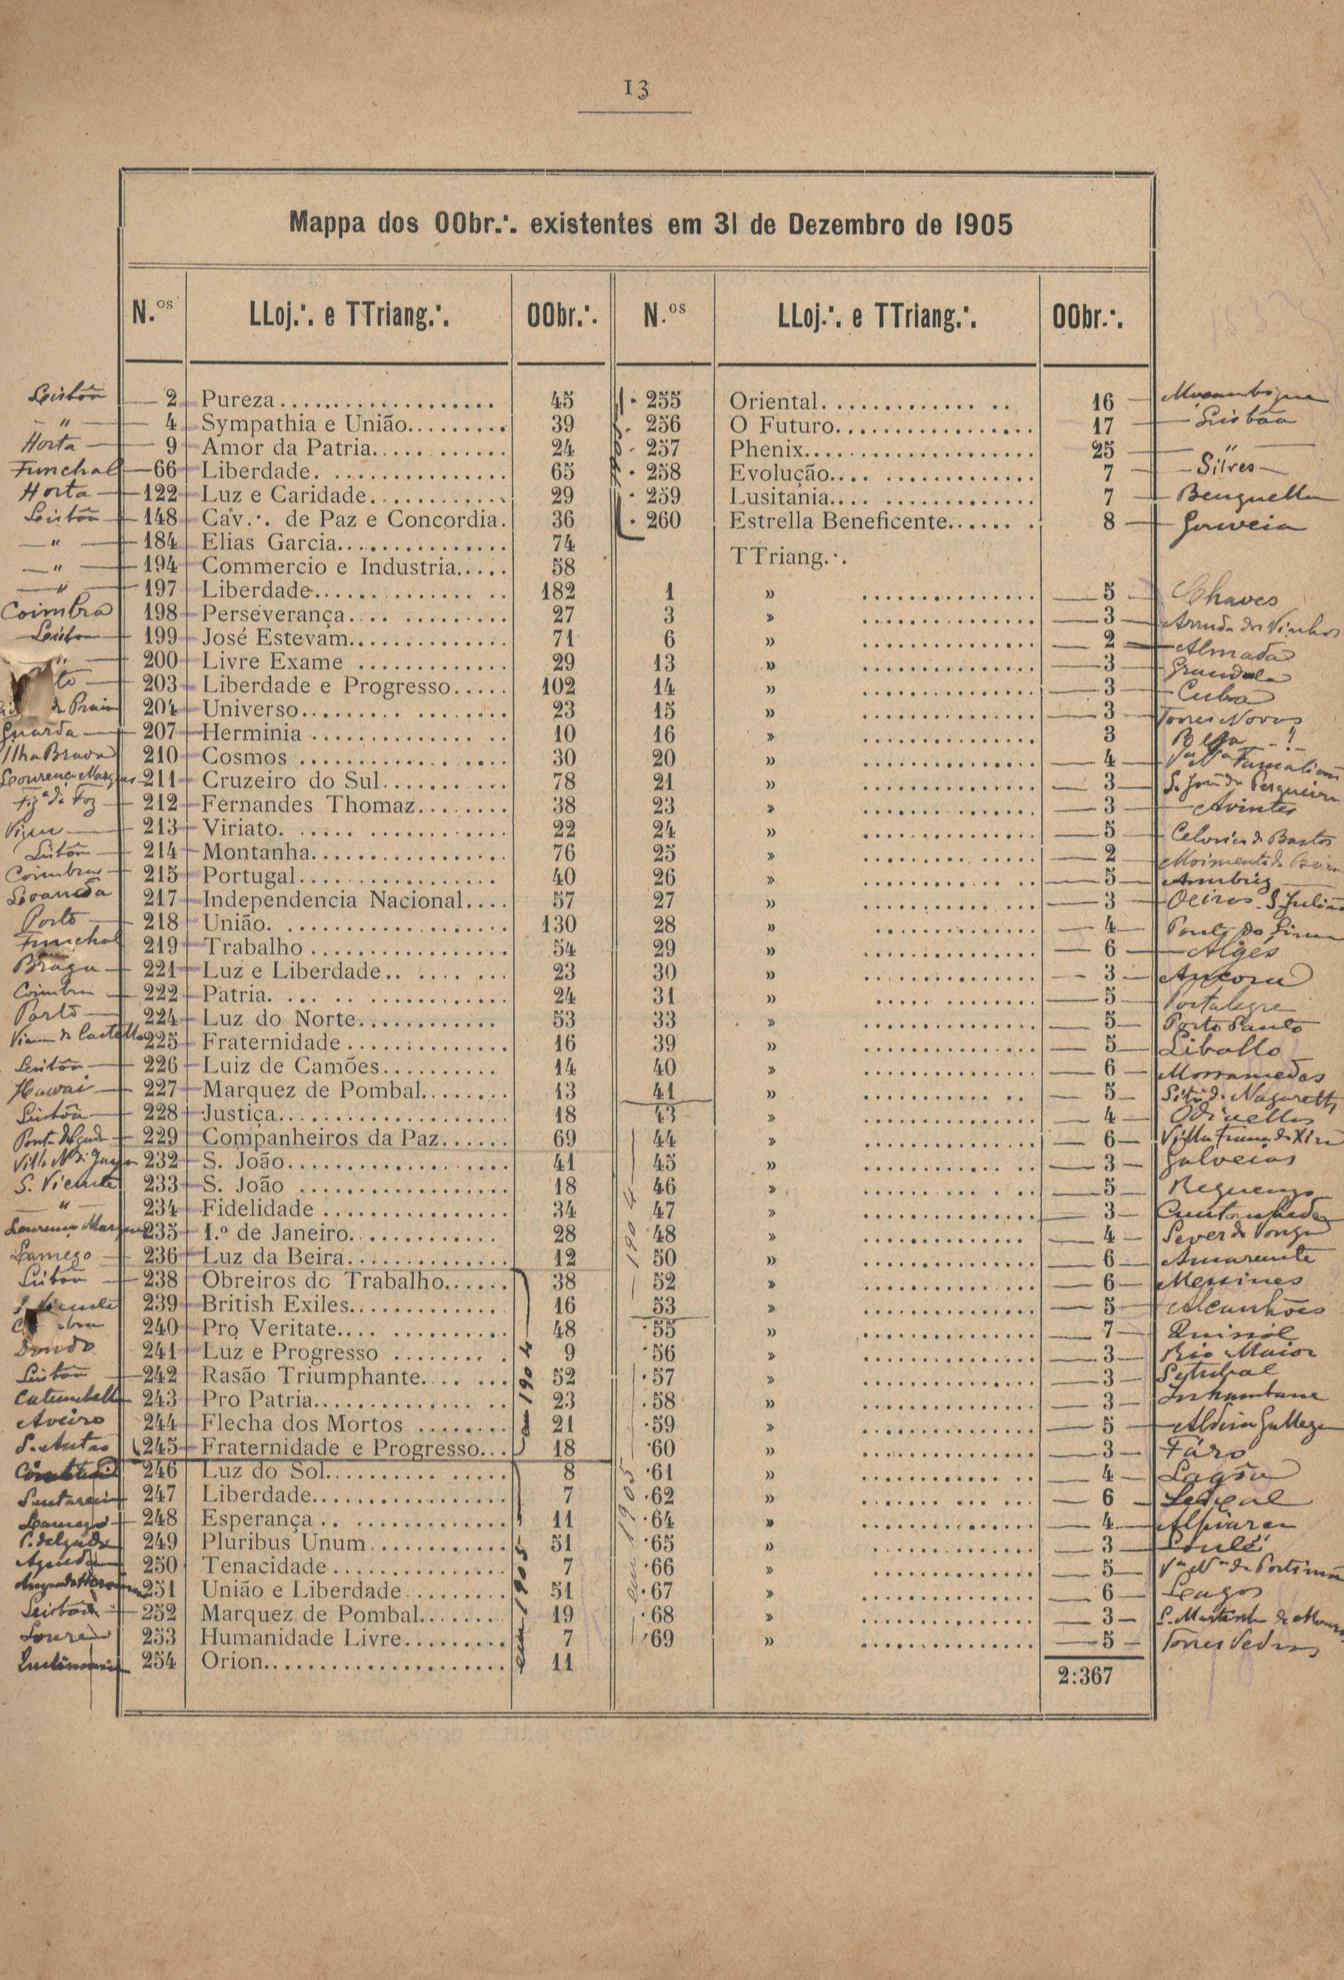 13
Mappa dos OObr.·. existentes em 31 de Dezembro de 1905
N.os LLoj.·. e TTriang.·. OObr.·. N.os LLoj.·. e TTriang.·. OObr.·.
Lisbôa 2 Pureza 45 255 Oriental 16 Moçambique
" 4 Sympathia e União 39 256 O Futuro 17 Lisbôa
Horta 9 Amor da Patria 24 257 Phenix 25 "
Funchal 66 Liberdade 65 258 Evolução 7 Silves
Horta 122 Luz e Caridade 29 259 Lusitania 7 Benguella
Lisbôa 148 Cav.·. de Paz e Concordia 36 260 Estrella Beneficente 8 Gouveia
" 184 Elias Garcia 74 TTriang.·.
" 194 Commercio e Industria 58
" 197 Liberdade 182 1 » 5 Chaves
Coimbra 198 Perseverança 27 3 » 3 Arruda dos Vinhos
Lisboa 199 José Estevam 71 6 » 2 Almada
" 200 Livre Exame 29 13 » 3 Grandola
203 Liberdade e Progresso 102 14 » 3 Cuba
204 Universo 23 15 » 3 Torres Novas
Guarda 207 Herminia 10 16 » 3 Beja
Ilha Brava 210 Cosmos 30 20 » 4 Famalicão
Lourenço Marques 211 Cruzeiro do Sul 78 21 » 3 S. João da Pesqueira
Figª da Foz 212 Fernandes Thomaz 38 23 » 3 Avintes
Vizeu 213 Viriato 22 24 » 5 Celorico de Bastos
Lisbôa 214 Montanha 76 25 » 2 Moimenta da Beira
Coimbra 215 Portugal 40 26 » 5 Ambriz
Loanda 217 Independencia Nacional 57 27 » 3 Oeiras S. Julião
Porto 218 União 130 28 » 4 Ponte do Lima
Funchal 219 Trabalho 54 29 » 6 Algés
Braga 221 Luz e Liberdade 23 30 » 3 Ancora
Coimbra 222 Patria 24 31 » 5 Portalegre
Porto 224 Luz do Norte 53 33 » 5 Porto Santo
Viana do Castello 225 Fraternidade 16 39 » 5 Libollo
Lisbôa 226 Luiz de Camões 14 40 » 6 Mossamedes
Hawai 227 Marquez de Pombal 13 41 » 5 Sitio da Nazareth
Lisbôa 228 Justiça 18 43 » 4 Odivellas
Ponta Delgada 229 Companheiros da Paz 69 44 » 6 Villa Franca de Xira
Villa Nª de Gaya 232 S. João 41 45 » 3 Galveias
S. Vicente 233 S. João 18 46 » 5 Reguengo
" 234 Fidelidade 34 47 » 3 Cantanhede
Lourenço Marques 235 1.º de Janeiro 28 48 » 4 Sever do Vouga
Lamego 236 Luz da Beira 12 50 » 6 Amarante
Lisbôa 238 Obreiros do Trabalho 38 52 » 6 Messines
239 British Exiles 16 53 » 5 Alcanhões
240 Pro Veritate 48 55 » 7
Dondo 241 Luz e Progresso 9 56 » 3 Rio Maior
Lisbôa 242 Rasão Triumphante 52 57 » 3 Setubal
Catumbella 243 Pro Patria 23 58 » 3 Inhambane
Aveiro 244 Flecha dos Mortos 21 59 » 5 Aldeia Gallega
S. Antão 245 Fraternidade e Progresso 18 60 » 3 Fáro
246 Luz do Sol 8 61 » 4 Lagôa
Santarem 247 Liberdade 7 62 » 6
Lamego 248 Esperança 11 64 » 4 Alpiarça
P. Delgada 249 Pluribus Unum 51 65 » 3 Loulé
Agueda 250 Tenacidade 7 66 » 5 Vª Nª de Portimão
Angra do Heroismo 251 União e Liberdade 51 67 » 6 Lagos
Lisbôa 252 Marquez de Pombal 19 68 » 3
Loures 253 Humanidade Livre 7 69 » 5 Torres Vedras
Quelimane 254 Orion 11
2:367
em 1904
em 1905
1904
em 1905